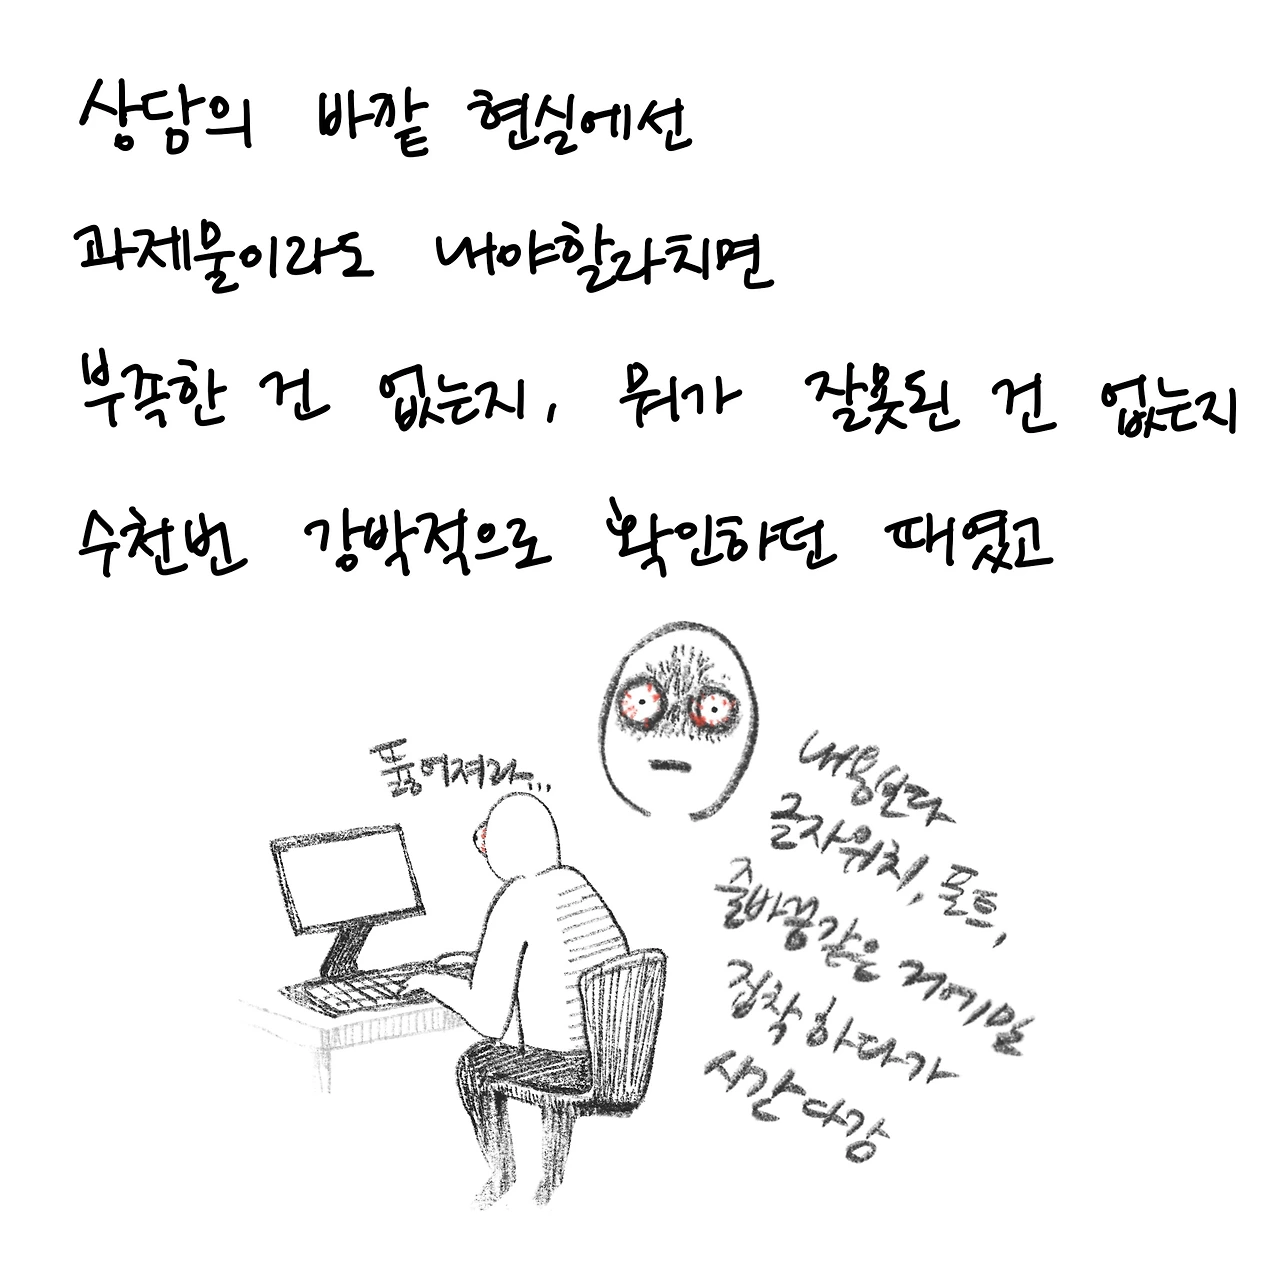 상담의 바깥 현실에선
과제물이라도 내야할라치면
부족한 건 없는지, 뭐가 잘못된 건 없는지
수천번 강박적으로 확인하던 때였고
뚫어져라...
내용보다
글자위치, 폰트,
줄바꿈같은 거에만
집착하다가
시간 다감